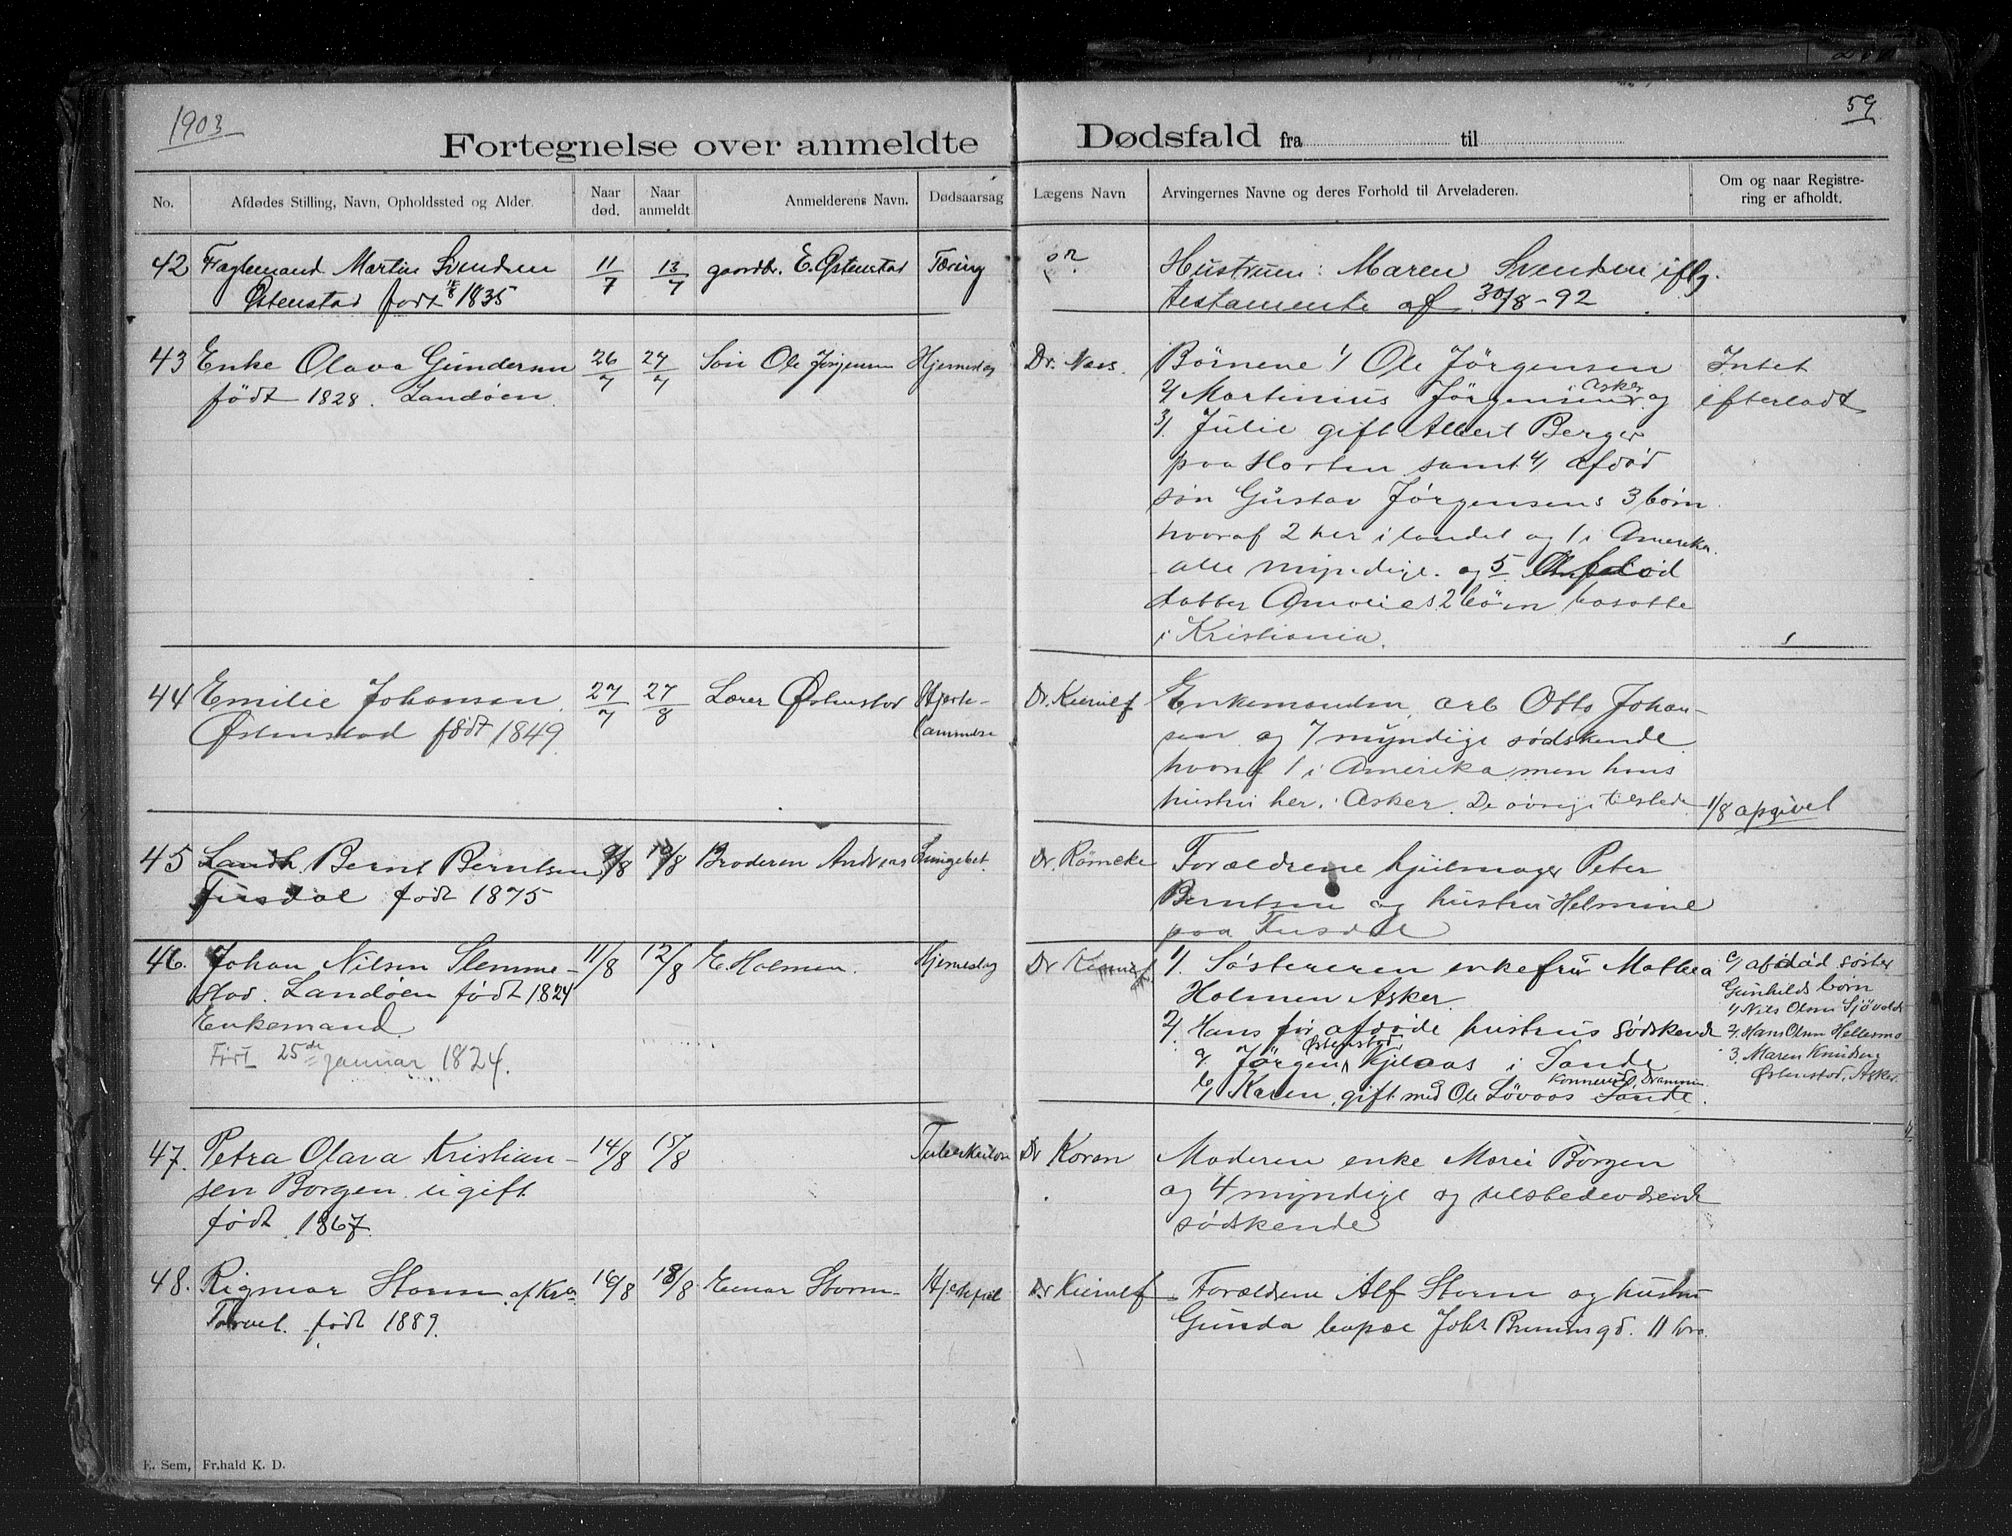 1903
59
Fortegnelse over anmeldte Dødsfald fra til
No.
Afdødes Stilling, Navn, Opholdssted og Alder.
Naar død.
Naar anmeldt.
Anmelderens Navn.
Dødsaarsag
Lægens Navn
Arvingernes Navne og deres Forhold til Arveladeren.
Om og naar Registre-
ring er afholdt.
42 Martin Svendsen 11/7 13/7 gaardbr. E. Østenstad Tæring
Østenstad født 1835
Hustruen: Maren Svendsen iflg.
testamente af 30/8-92
43 Enke Olava Gundersen 26/7 27/7 Søn Ole Jørgensen Hjerneslag Dr. Næs.
født 1828. Landøen.
Børnene 1/ Ole Jørgensen
2/ Martinius Jørgensen i Asker og
3/. Julie gift Albert Berger
paa Horten samt 4/ afdød
søn Gustav Jørgensens 3 børn
hvoraf 2 her i landet og 1 i Amerika.
alle myndige. og 5 afdød
datter Amalies 2 børn, bosatte
i Kristiania.
Intet
efterladt
44 Emilie Johansen. 27/7 27/8 Lærer Østenstad Hjerte-
lammelse Dr. Kierulf
Østenstad født 1849.
Enkemanden, arb Otto Johan-
sen og 7 myndige sødskende
hvoraf 1 i Amerika men hans
hustru her i Asker. De øvrige tilstede
1/8 opgivet
45 Landh. Bernt Berntsen 9/8 10/8 Broderen Andreas Lungebet. Dr. Rømcke
Fusdal født 1875
Forældrene hjulmager Peter
Berntsen og hustru Helmine
paa Fusdal
46. Johan Nilsen Slemme- 11/8 12/8 E. Holmen. Hjerneslag Dr Kierulf
stad. Landøen født 1824
Enkemand
Født 25de januar 1824.
1/. Søsteren enkefru Mathea
Holmen Asker
2/. Hans før afdøde hustrus sødskende
a/ Jørgen Østenstad, Kjilaas i Sande
b/ Karen, gift med Ole Løvaas Konnerud, Drammen Sande.
c/ afdød søster
Gunhilds børn
1/ Nils Olsen Sjøvold
2/. Hans Olsen Hellesmo
3. Maren Knudsen
Østenstad, Asker.
47. Petra Olava Kristian- 14/8 15/8 Tuberkulose Dr Koren
sen Borgen ugift
født 1867.
Moderen enke Marie Borgen
og 4 myndige og tilstedeværende
sødskende
48. Rigmor Storm af Kra 16/8 18/8 Einar Storm Hjertefeil Dr Kierulf
Torvet. født 1889.
Forældrene Alf Storm og hustru
Gunda
E. Sem, Fr.hald K. D.